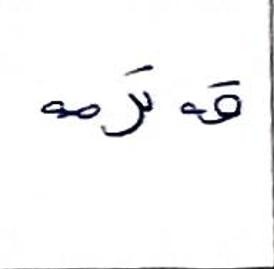 قه ترمه